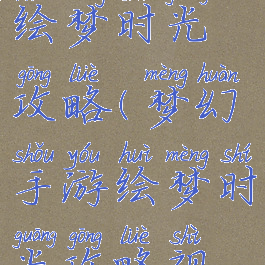 绘梦时光
gōng lüè mèng huàn
攻略(梦幻
shǒu yóu huì mèng shí
手游绘梦时
guāng gōng lüè shì
光攻略视